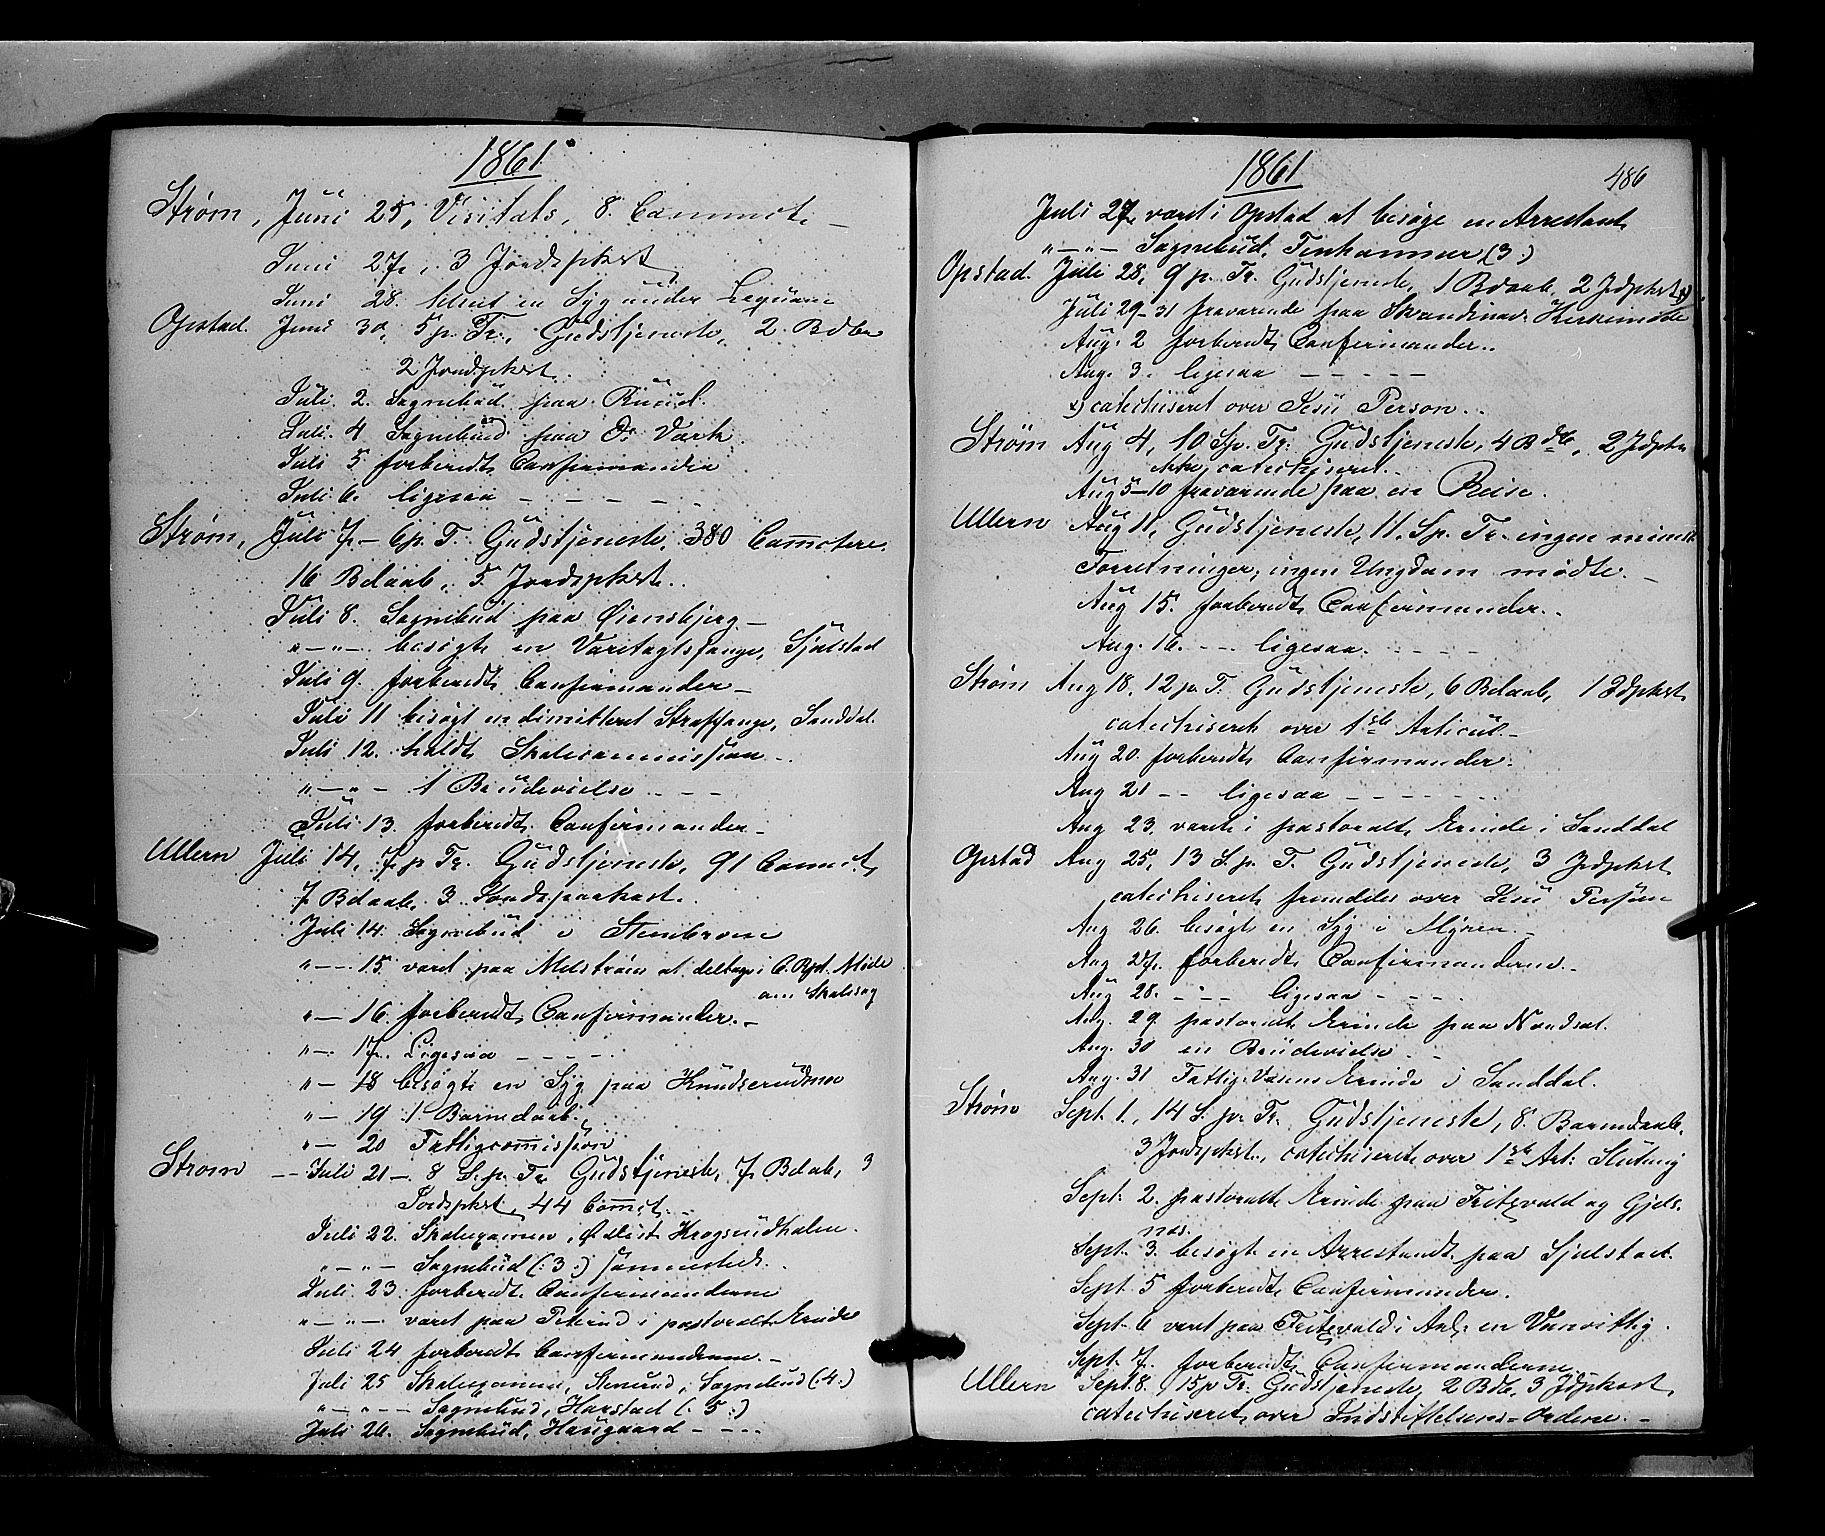 1861
Strøm, Juni 25, Visitats, 8. Commuct. –
Juni 27, 3 Jordspkst
Juni 28. en Syg under
Opstad. Juni 30, 5 p. Tr., Gudstjeneste, 2. Bdbe
2 Jordpkst.
Juli. 2. Sognebud paa Ruud.
Juli. 4 Sognebud paa Os Værk
Juli 5 forberedt Confirmander
Juli 6. ligesaa – – – – –
Strøm, Juli 7 – 6 p. T. Gudstjeneste, 380 Com̅otere.
16 Bdaab, 5 Jordspkst.
Juli 8. Sognebud paa Øiensbjerg –
" – " – besøgte en Varetægtsfange, Sjulstad
Juli 9. forberedt Confirmander –
Juli 11 besøgt en dimitteret Straffange, Sanddal.
Juli 12. holdt Skolecommission –
" – " – 1 Brudevielse – – –
Juli 13. forberedt Confirmander –
Ullern Juli 14, 7 p Tr. Gudstjeneste, 91 Commct.
7 Bdaab, 3 Jordspaakast.
Juli 14. Sognebud i Stenbroen
" – 15 været paa Melstrøm at deltage i Møde
om Skolesag
" – 16 forberedt Confirmander. –
" – 17. Ligesaa – – – –
" – 18 besøgte en Syg paa Knudserudmoe
" – 19 1 Barnedaab.
" – 20 Fattigcom̅ission
Strøm – Juli 21 – 8 S. p. Tr Gudstjeneste, 7 Bdaab, 3
Jordspkst, 44 Com̅ct. –
Juli 22. Skoleexamen, Krogsrudholen.
" – " – Sognebud (: 3 :) sammesteds.
Juli 23 forberedt Confirmanderne
" – " – været paa i pastoralt Erinde
Juli 24 forberedt Confirmanderne. –
Juli 25 Skoleexamen, Stenrud, Sognebud (4:)
" – " – Sognebud, Harstad (: 5 :)
Juli 26. Sognebud, Haugaard – – – –
1861 486
Juli 27, været i Opstad at besøge en Arrestant
" – " – Sognebud, (3:)
Opstad. Juli 28, 9 p. Tr. Gudstjeneste, 1 Bdaab, 2 Jdpkst x)
Juli 29–31 fraværende paa Skandinav. Kirkemøde
Aug. 2 forberedt Confirmander..
Aug. 3. ligesaa – – – – –
x) catechiseret over Jesu Person. .
Strøm Aug 4, 10 S. p. Tr. Gudstjeneste, 4 Bdb, 2 Jdpkst
ikke catechiseret. –
Aug 5–10 fraværende paa en Reise.
Ullern Aug 11, Gudstjeneste, 11. S p. Tr. ingen minist
Forretninger, ingen Ungdom mødte. –
Aug 15. forberedt Confirmander. .
Aug. 16. – – – ligesaa. – – – – –
Strøm Aug 18, 12 p. T. Gudstjeneste, 6 Bdaab, 1 Jdpkst,
catechiseret over 1ste Articul –
Aug 20. forberedt Confirmander.
Aug 21 – – ligesaa – – – – – –
Aug 23. været i pastoralt Erinde i Sanddal
Opstad Aug 25, 13 S. p. T. Gudstjeneste, 3 Jdpkst
catechiseret fremdeles over Jesu Person
Aug 26. besøgt en Syg i Myren. –
Aug 27. forberedt Confirmanderne. –
Aug 28. – " – ligesaa – – – –
Aug. 29 pastoralt Erinde paa Nordsæt.
Aug. 30 en Brudevielse. –
Aug. 31 Fattig-Væsens Erinde i Sanddal.
Strøm Sept. 1., 14 S. p. Tr. Gudstjeneste, 8. Barndaab,
3 Jordspkst, catechiseret over 1ste Art: Slutning
Sept. 2. pastoralt Erinde paa Fritzvald og Gjels-
nes.
Sept. 3. besøgt en Arrestandt paa Sjulstad.
Sept. 5 forberedt Confirmander.
Sept. 6 været paa Fritzvald i Anl. en Vanvittig.
Sept. 7. forberedt Confirmanderne
Ullern Sept. 8. 15 p Tr. Gudstjeneste, 2 Bdb, 3 Jdpkast,
catechiseret over Indstiftelsens-Ordene. –